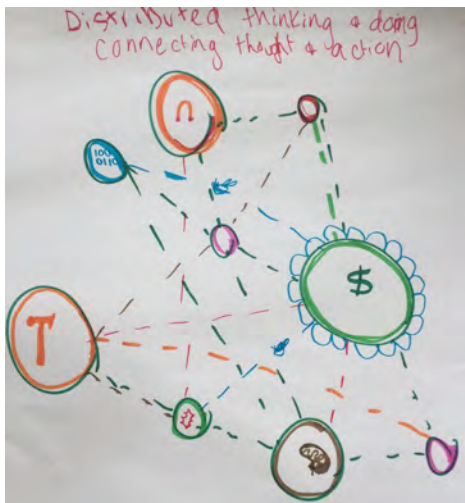 Distributed thinking & doing
connecting thought & action
100
0110
$
T